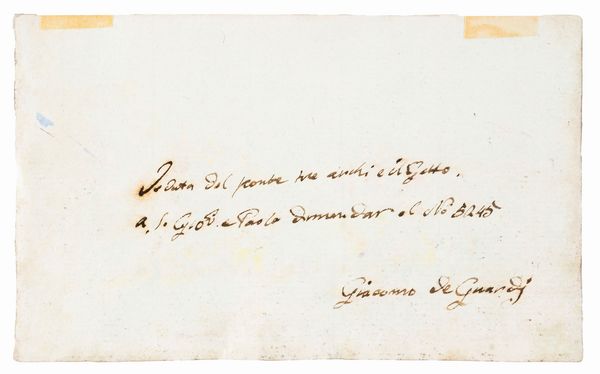 Veduta del ponte tre archi e il Getto.
a, S. Gio: e Paolo dimandar al No 5245
Giacomo de Guardi